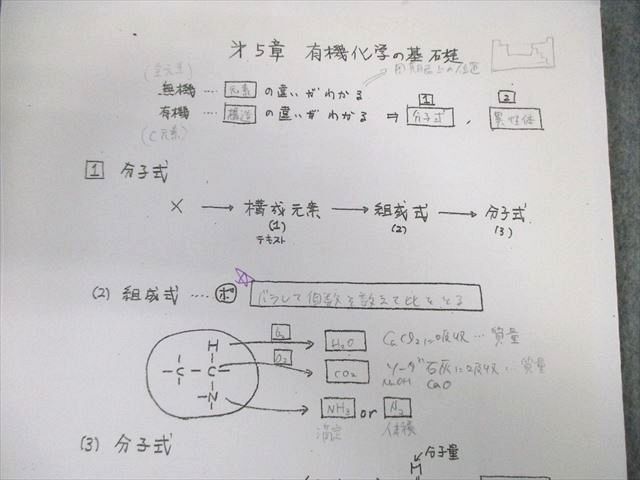 第5章 有機化学の基礎
(全元素)
周期表上の位置
無機 … 元素 の違いがわかる
有機 … 構造 の違いがわかる ⇒ 1 分子式 , 2 異性体
(C元素)
1 分子式
X → 構成元素 → 組成式 → 分子式
(1) (2) (3)
テキスト
(2) 組成式 …… ボ バラして個数を数えて比をとる
H O₂ H₂O CaCl₂に吸収 … 質量
-C-C= O₂ CO₂ ソーダ石灰に吸収 … 質量
NaOH CaO
-N- NH₃ or N₂
滴定 体積
(3) 分子式
分子量
M